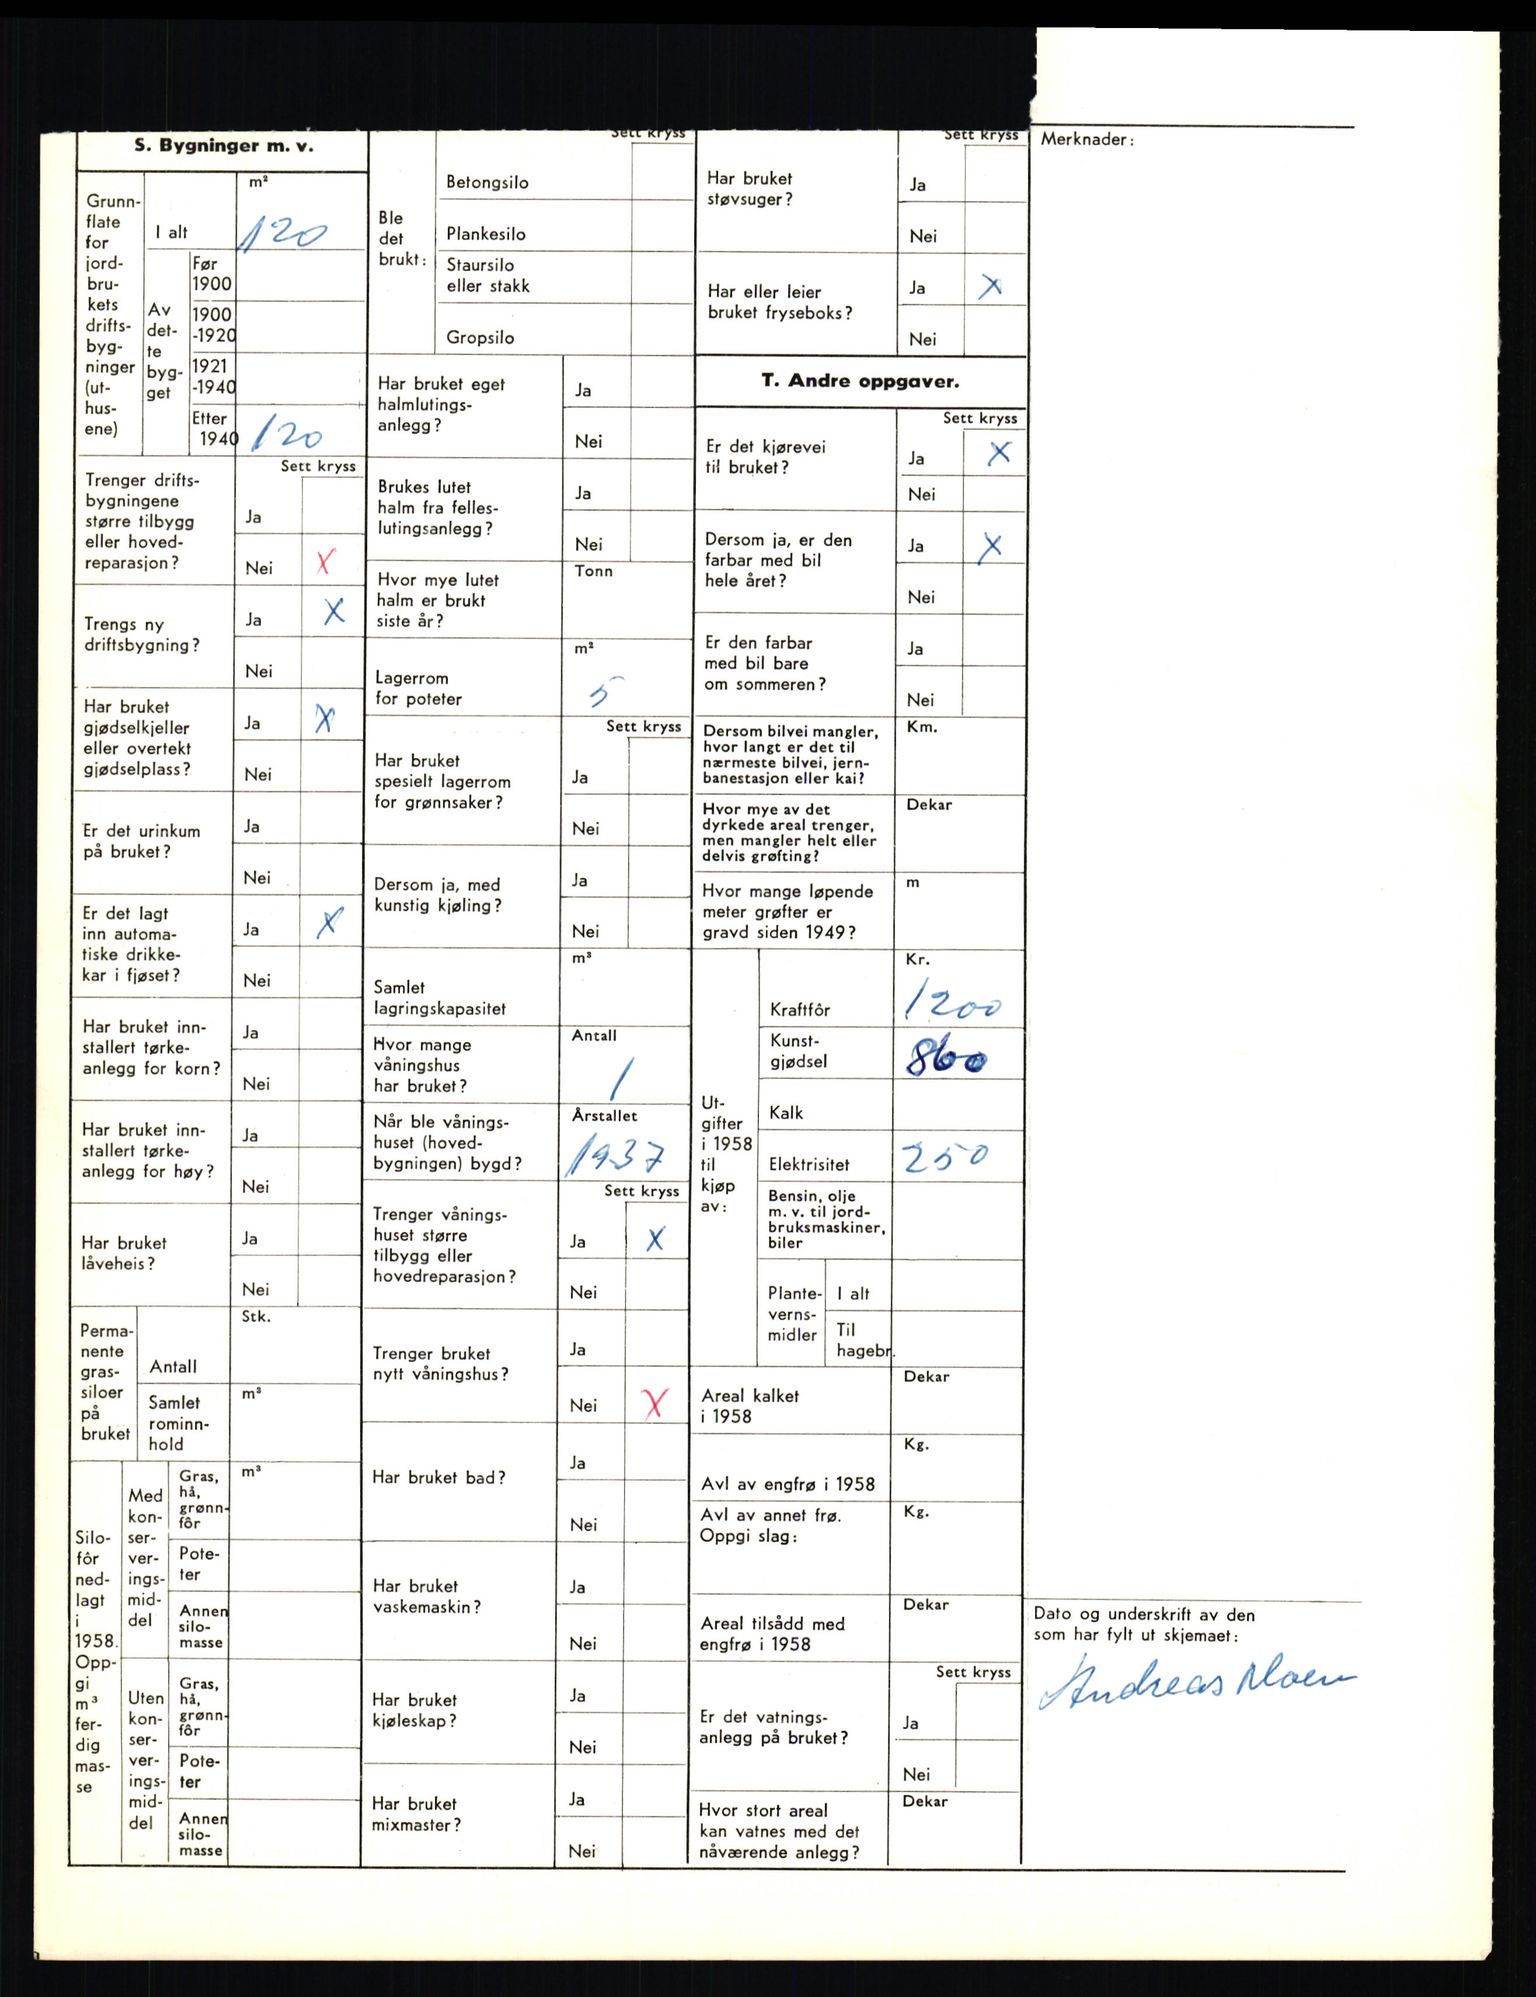 S. Bygninger m. v.
Grunn-
flate
for
jord-
bru-
kets
drifts-
byg-
ninger
(ut-
hus-
ene)
I alt
m²
120
Av
det-
te
byg-
get
Før
1900
1900
-1920
1921
-1940
Etter
1940
120
Sett kryss
Trenger drifts-
bygningene
større tilbygg
eller hoved-
reparasjon?
Ja
Nei X
Trengs ny
driftsbygning?
Ja X
Nei
Har bruket
gjødselkjeller
eller overtekt
gjødselplass?
Ja X
Nei
Er det urinkum
på bruket?
Ja
Nei
Er det lagt
inn automa-
tiske drikke-
kar i fjøset?
Ja X
Nei
Har bruket inn-
stallert tørke-
anlegg for korn?
Ja
Nei
Har bruket inn-
stallert tørke-
anlegg for høy?
Ja
Nei
Har bruket
låveheis?
Ja
Nei
Perma-
nente
gras-
siloer
på
bruket
Antall
Stk.
Samlet
rominn-
hold
m³
Silo-
fôr
ned-
lagt
i
1958.
Opp-
gi
m³
fer-
dig
mas-
se
Med
kon-
ser-
ver-
ings-
mid-
del
Gras,
hå,
grønn-
fôr
m³
Pote-
ter
Annen
silo-
masse
Uten
kon-
ser-
ver-
ings-
mid-
del
Gras,
hå,
grønn-
fôr
Pote-
ter
Annen
silo-
masse
Sett kryss
Ble
det
brukt:
Betongsilo
Plankesilo
Staursilo
eller stakk
Gropsilo
Har bruket eget
halmlutings-
anlegg?
Ja
Nei
Brukes lutet
halm fra felles-
lutingsanlegg?
Ja
Nei
Hvor mye lutet
halm er brukt
siste år?
Tonn
Lagerrom
for poteter
m²
5
Sett kryss
Har bruket
spesielt lagerrom
for grønnsaker?
Ja
Nei
Dersom ja, med
kunstig kjøling?
Ja
Nei
Samlet
lagringskapasitet
m³
Hvor mange
våningshus
har bruket?
Antall
1
Når ble vånings-
huset (hoved-
bygningen) bygd?
Årstallet
1937
Sett kryss
Trenger vånings-
huset større
tilbygg eller
hovedreparasjon?
Ja X
Nei
Trenger bruket
nytt våningshus?
Ja
Nei X
Har bruket bad?
Ja
Nei
Har bruket
vaskemaskin?
Ja
Nei
Har bruket
kjøleskap?
Ja
Nei
Har bruket
mixmaster?
Ja
Nei
Sett kryss
Har bruket
støvsuger?
Ja
Nei
Har eller leier
bruket fryseboks?
Ja X
Nei
T. Andre oppgaver.
Sett kryss
Er det kjørevei
til bruket?
Ja X
Nei
Dersom ja, er den
farbar med bil
hele året?
Ja X
Nei
Er den farbar
med bil bare
om sommeren?
Ja
Nei
Dersom bilvei mangler,
hvor langt er det til
nærmeste bilvei, jern-
banestasjon eller kai?
Km.
Hvor mye av det
dyrkede areal trenger,
men mangler helt eller
delvis grøfting?
Dekar
Hvor mange løpende
meter grøfter er
gravd siden 1949?
m
Ut-
gifter
i 1958
til
kjøp
av:
Kr.
Kraftfôr
1200
Kunst-
gjødsel
860
Kalk
Elektrisitet
250
Bensin, olje
m. v. til jord-
bruksmaskiner,
biler
Plante-
verns-
midler
I alt
Til
hagebr.
Areal kalket
i 1958
Dekar
Avl av engfrø i 1958
Kg.
Avl av annet frø.
Oppgi slag:
Kg.
Areal tilsådd med
engfrø i 1958
Dekar
Sett kryss
Er det vatnings-
anlegg på bruket?
Ja
Nei
Hvor stort areal
kan vatnes med det
nåværende anlegg?
Dekar
Merknader:
Dato og underskrift av den
som har fylt ut skjemaet:
Andreas Moen